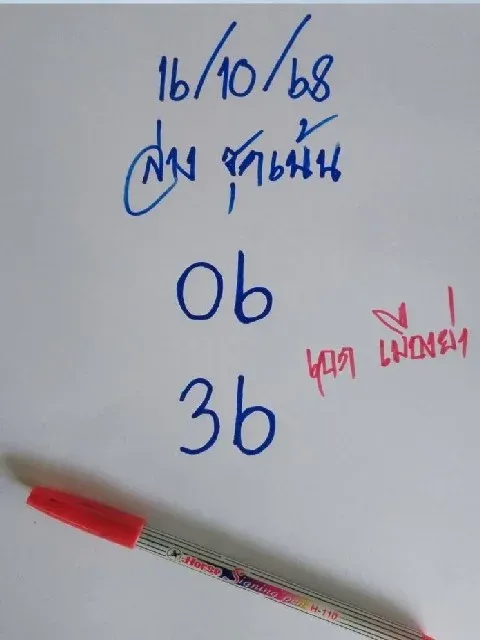 16/10/68
ล่าง ชุดเน้น
06
36
เมืองย่า
Horse Signing pen H-110